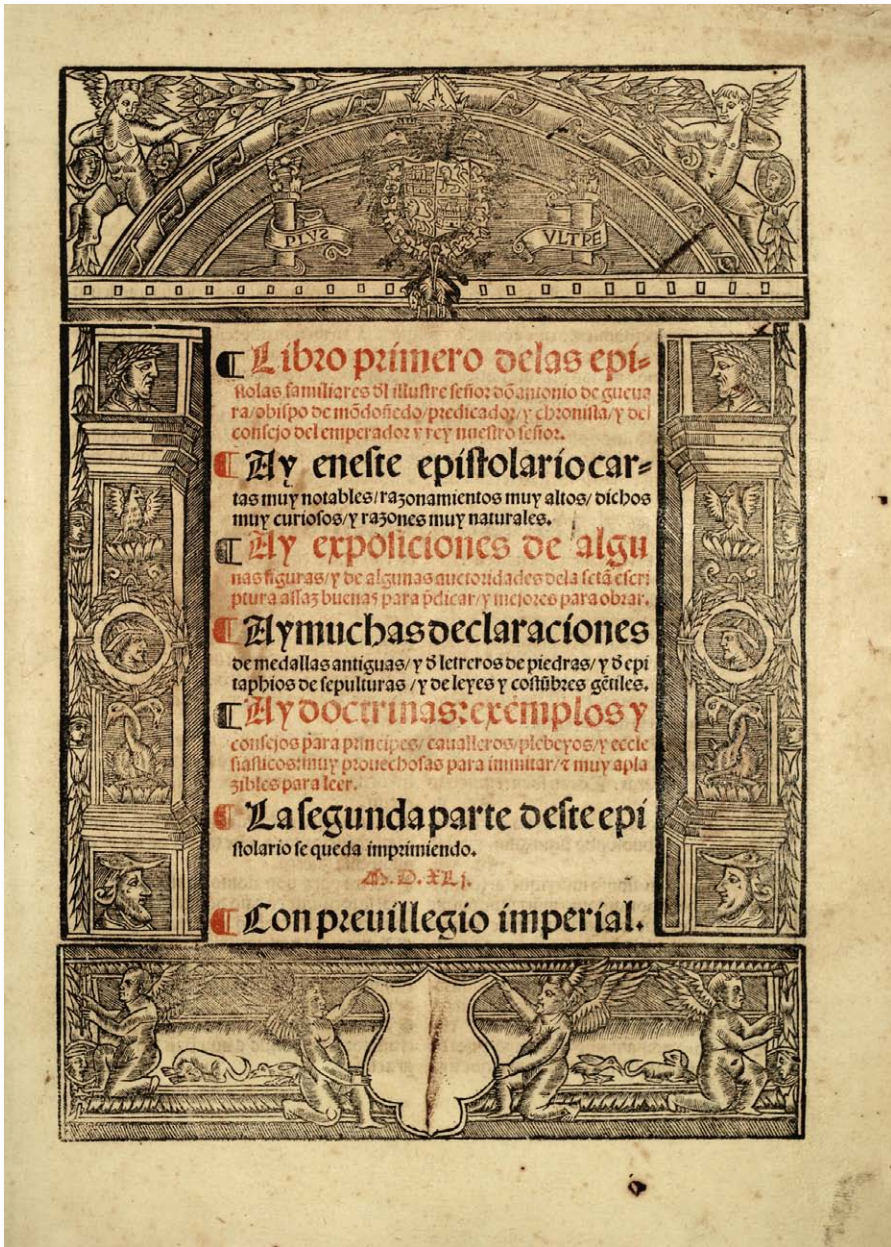 PLVS VLTRE
¶ Libro primero delas epi-
stolas familiares dl illustre señor dō antonio de gueua
ra/obispo de mōdoñedo/predicador/y chronista/y del
consejo del emperador y rey nuestro señor.
¶ Ay eneste epistolario car-
tas muy notables/razonamientos muy altos/dichos
muy curiosos/y razones muy naturales.
¶ Ay exposiciones de algu
nas figuras/y de algunas auctoridades dela sctā escri
ptura assaz buenas para p̄dicar/y mejores para obrar.
¶ Ay muchas declaraciones
de medallas antiguas/y d̄ letreros de piedras/y d̄ epi
taphios de sepulturas/y de leyes y costūbres gētiles.
¶ Ay doctrinas: exemplos y
consejos para principes/caualleros/plebeyos/y eccle
siasticos: muy prouechosas para immitar/⁊ muy apla
zibles para leer.
¶ La segunda parte deste epi
stolario se queda imprimiendo.
M.D.XLj.
¶ Con preuillegio imperial.